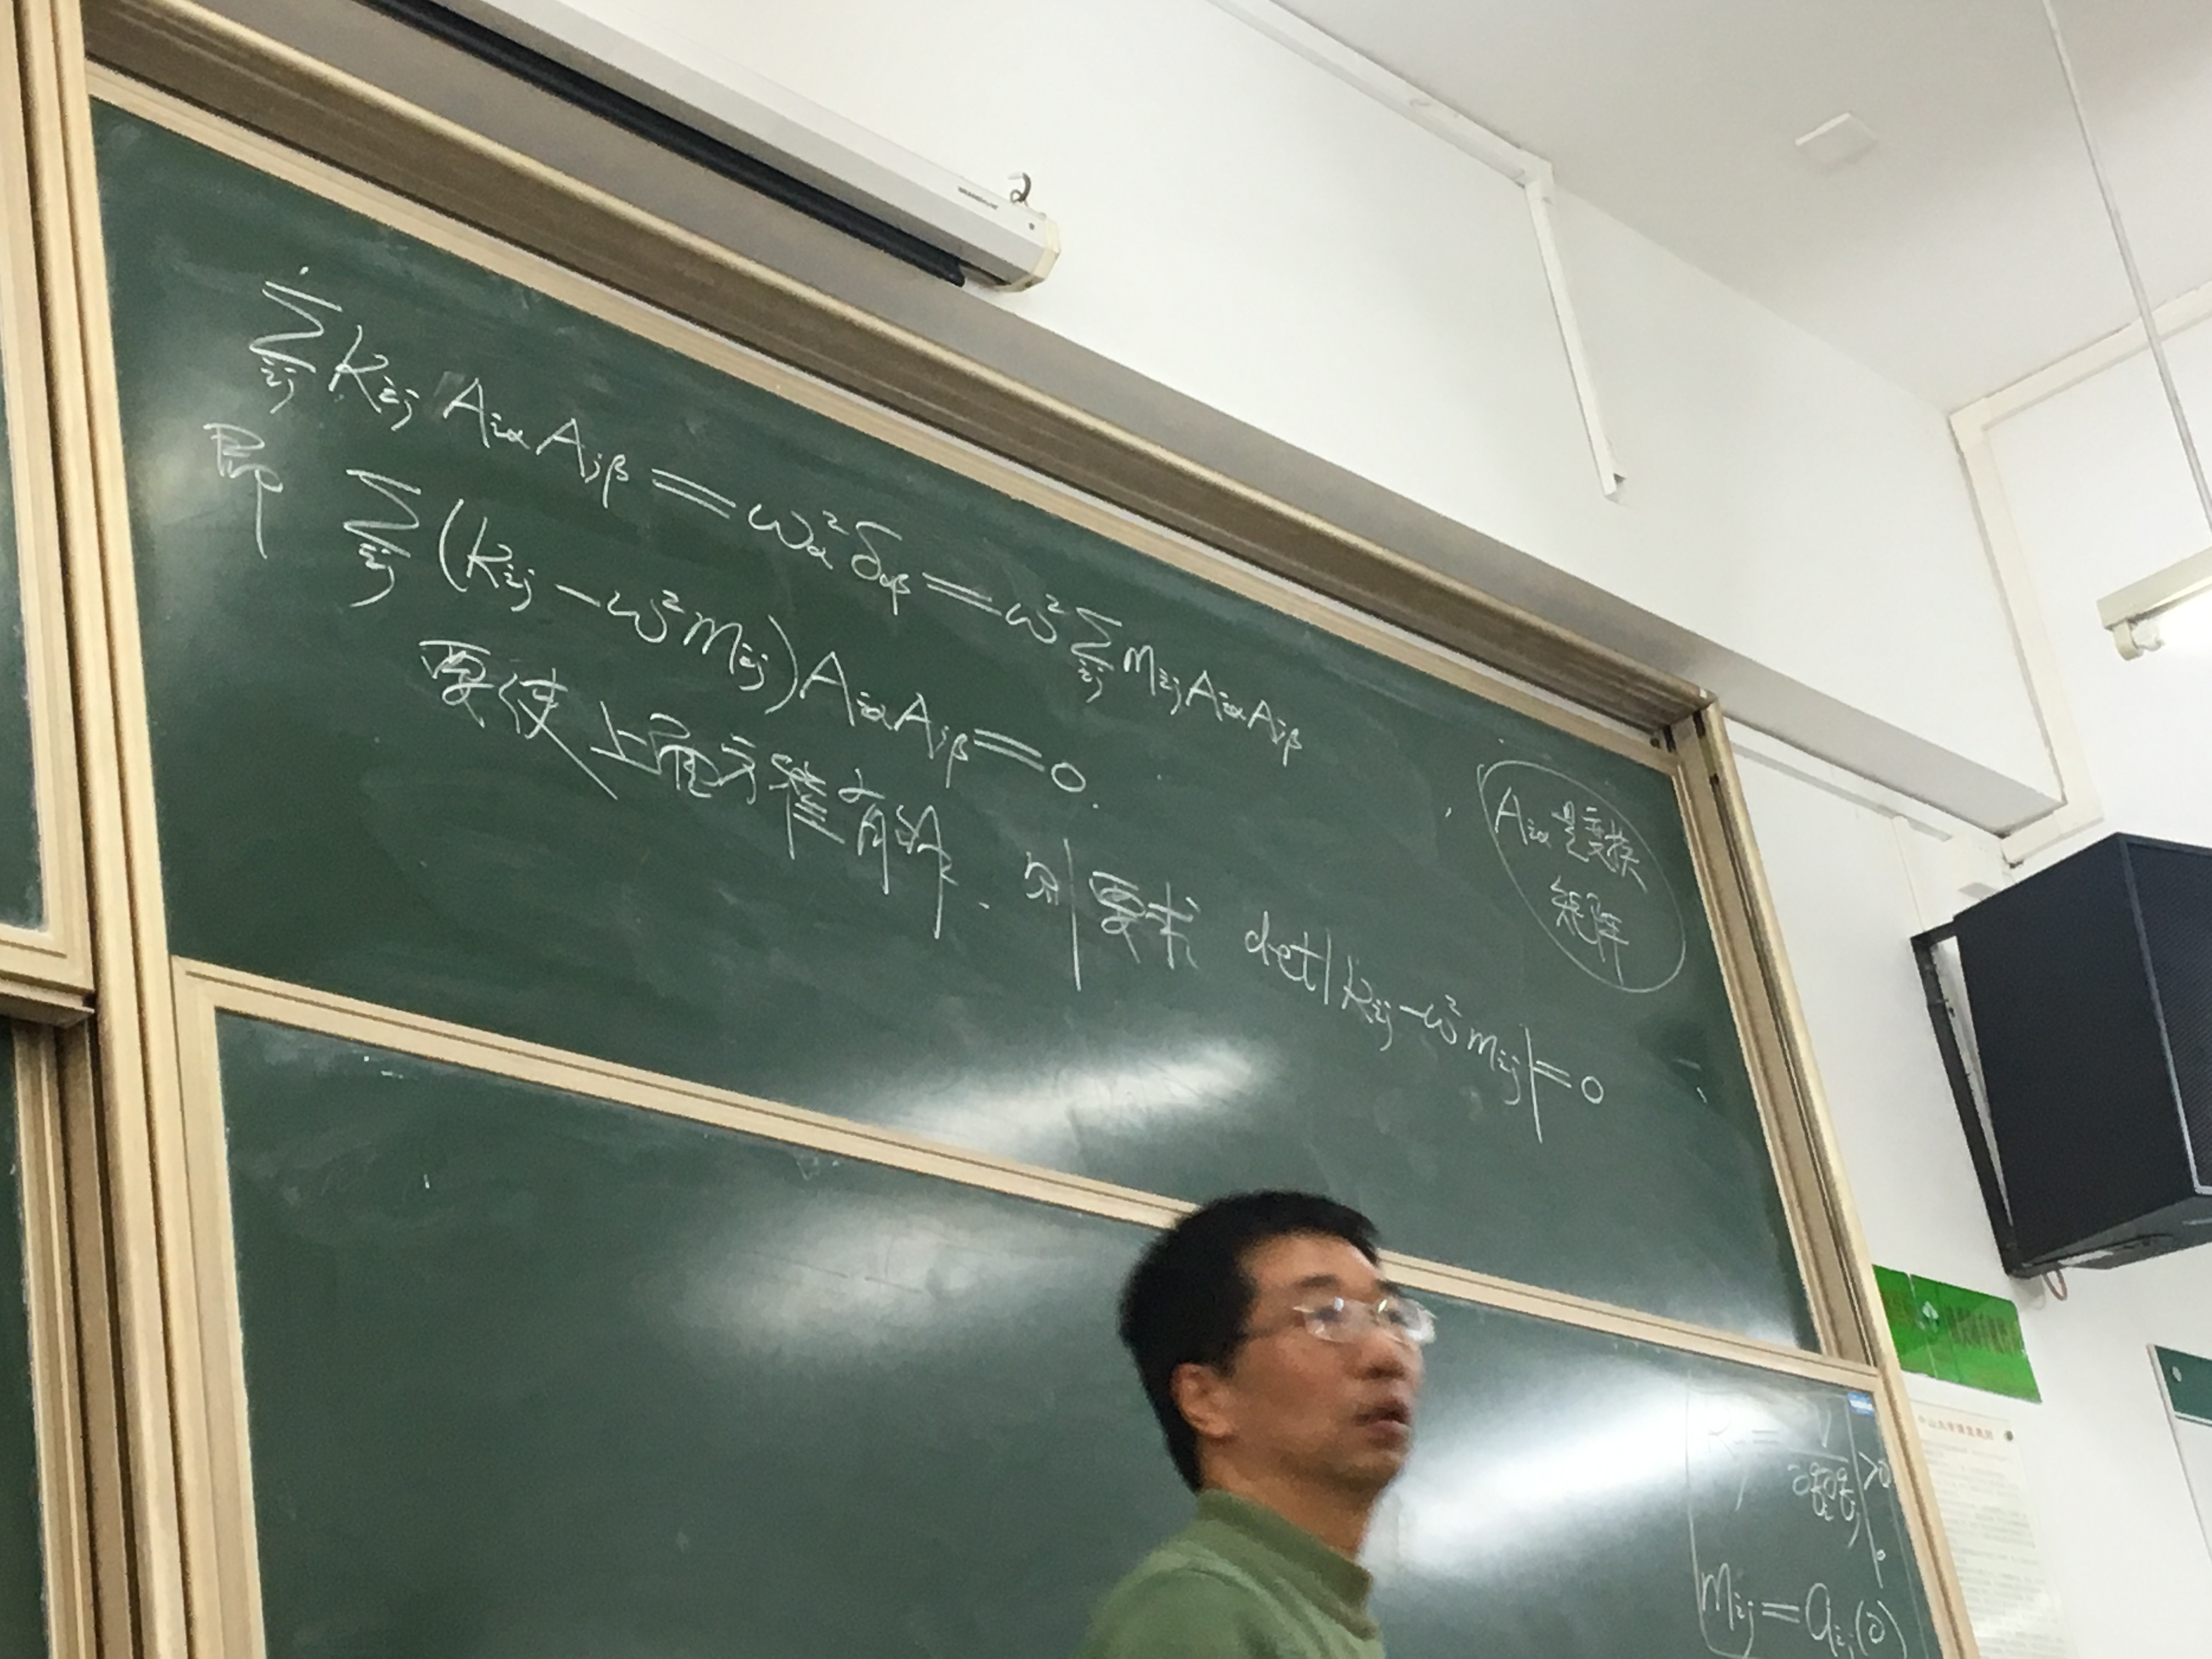 ∑_{ij} k_{ij} A_{iα} A_{jβ} = ω_α² δ_{αβ} = ω² ∑_{ij} m_{ij} A_{iα} A_{jβ}
即 ∑_{ij} (k_{ij} - ω² m_{ij}) A_{iα} A_{jβ} = 0.
要使上面方程有解. 则要求 det|k_{ij} - ω² m_{ij}| = 0
A_{iα} 是变换
矩阵
∂q_i ∂q_j
> 0
m_{ij} = a_{ij}(0)